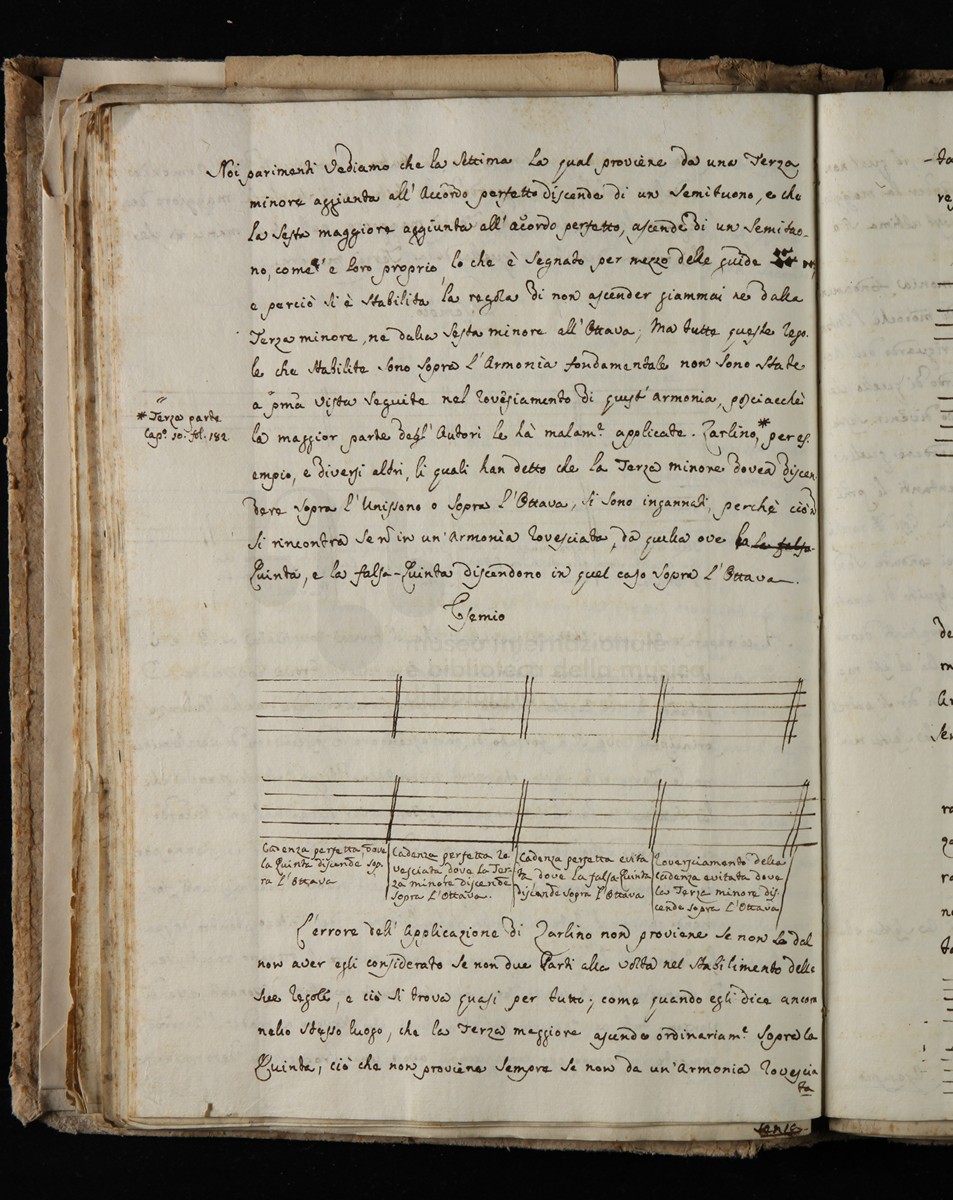 Noi parimenti vediamo che la Settima la qual proviene da una Terza
minore aggiunta all' Accordo perfetto discende di un Semituono, e che
la Sesta maggiore aggiunta all' acordo perfetto, ascende di un Semituo-
no, come è loro proprio, lo che è segnato per mezzo delle guide
e perciò si è stabilita la regola di non ascender giammai ne dalla
Terza minore, ne dalla Sesta minore all' Ottava; Ma tutte queste rego-
le che stabilite sono sopra l'Armonia fondamentale non sono state
a pma vista seguite nel rovesciamento di quest' armonia, posciacchè
la maggior parte degl' Autori le hà malamte applicate. Zarlino,* per es-
* Terza parte
Capo. 10. fol. 182
empio, e diversi altri, li quali han detto che la Terza minore dovea discen-
dere sopra l'Unissono o sopra l'Ottava, si sono ingannati, perchè ciò
si rincontra se in un' Armonia rovesciata, da quella ove la la falsa-
Quinta, e la falsa-Quinta discendono in quel caso sopra l'Ottava.
Esemio
Cadenza perfetta dove
la Quinta discende sop-
ra l'Ottava
Cadenza perfetta ro
vesciata dove la Ter-
za minore discende
sopra l'Ottava.
Cadenza perfetta evita
ta dove la falsa-Quinta
discende sopra l'Ottava
Roversciamento della
Cadenza evitata dove
la Terza minore dis-
cende sopra l'Ottava
L'errore dell' Applicazione di Zarlino non proviene se non dal
non aver egli considerato se non due Parti alla volta nel stabilimento delle
sue regole, e ciò si trova quasi per tutto; come quando egli dice ancora
nello stesso luogo, che la Terza maggiore ascende ordinariamte sopra la
Quinta, ciò che non proviene sempre se non da un' Armonia rovescia
ta
museo internazionale
e biblioteca della musica